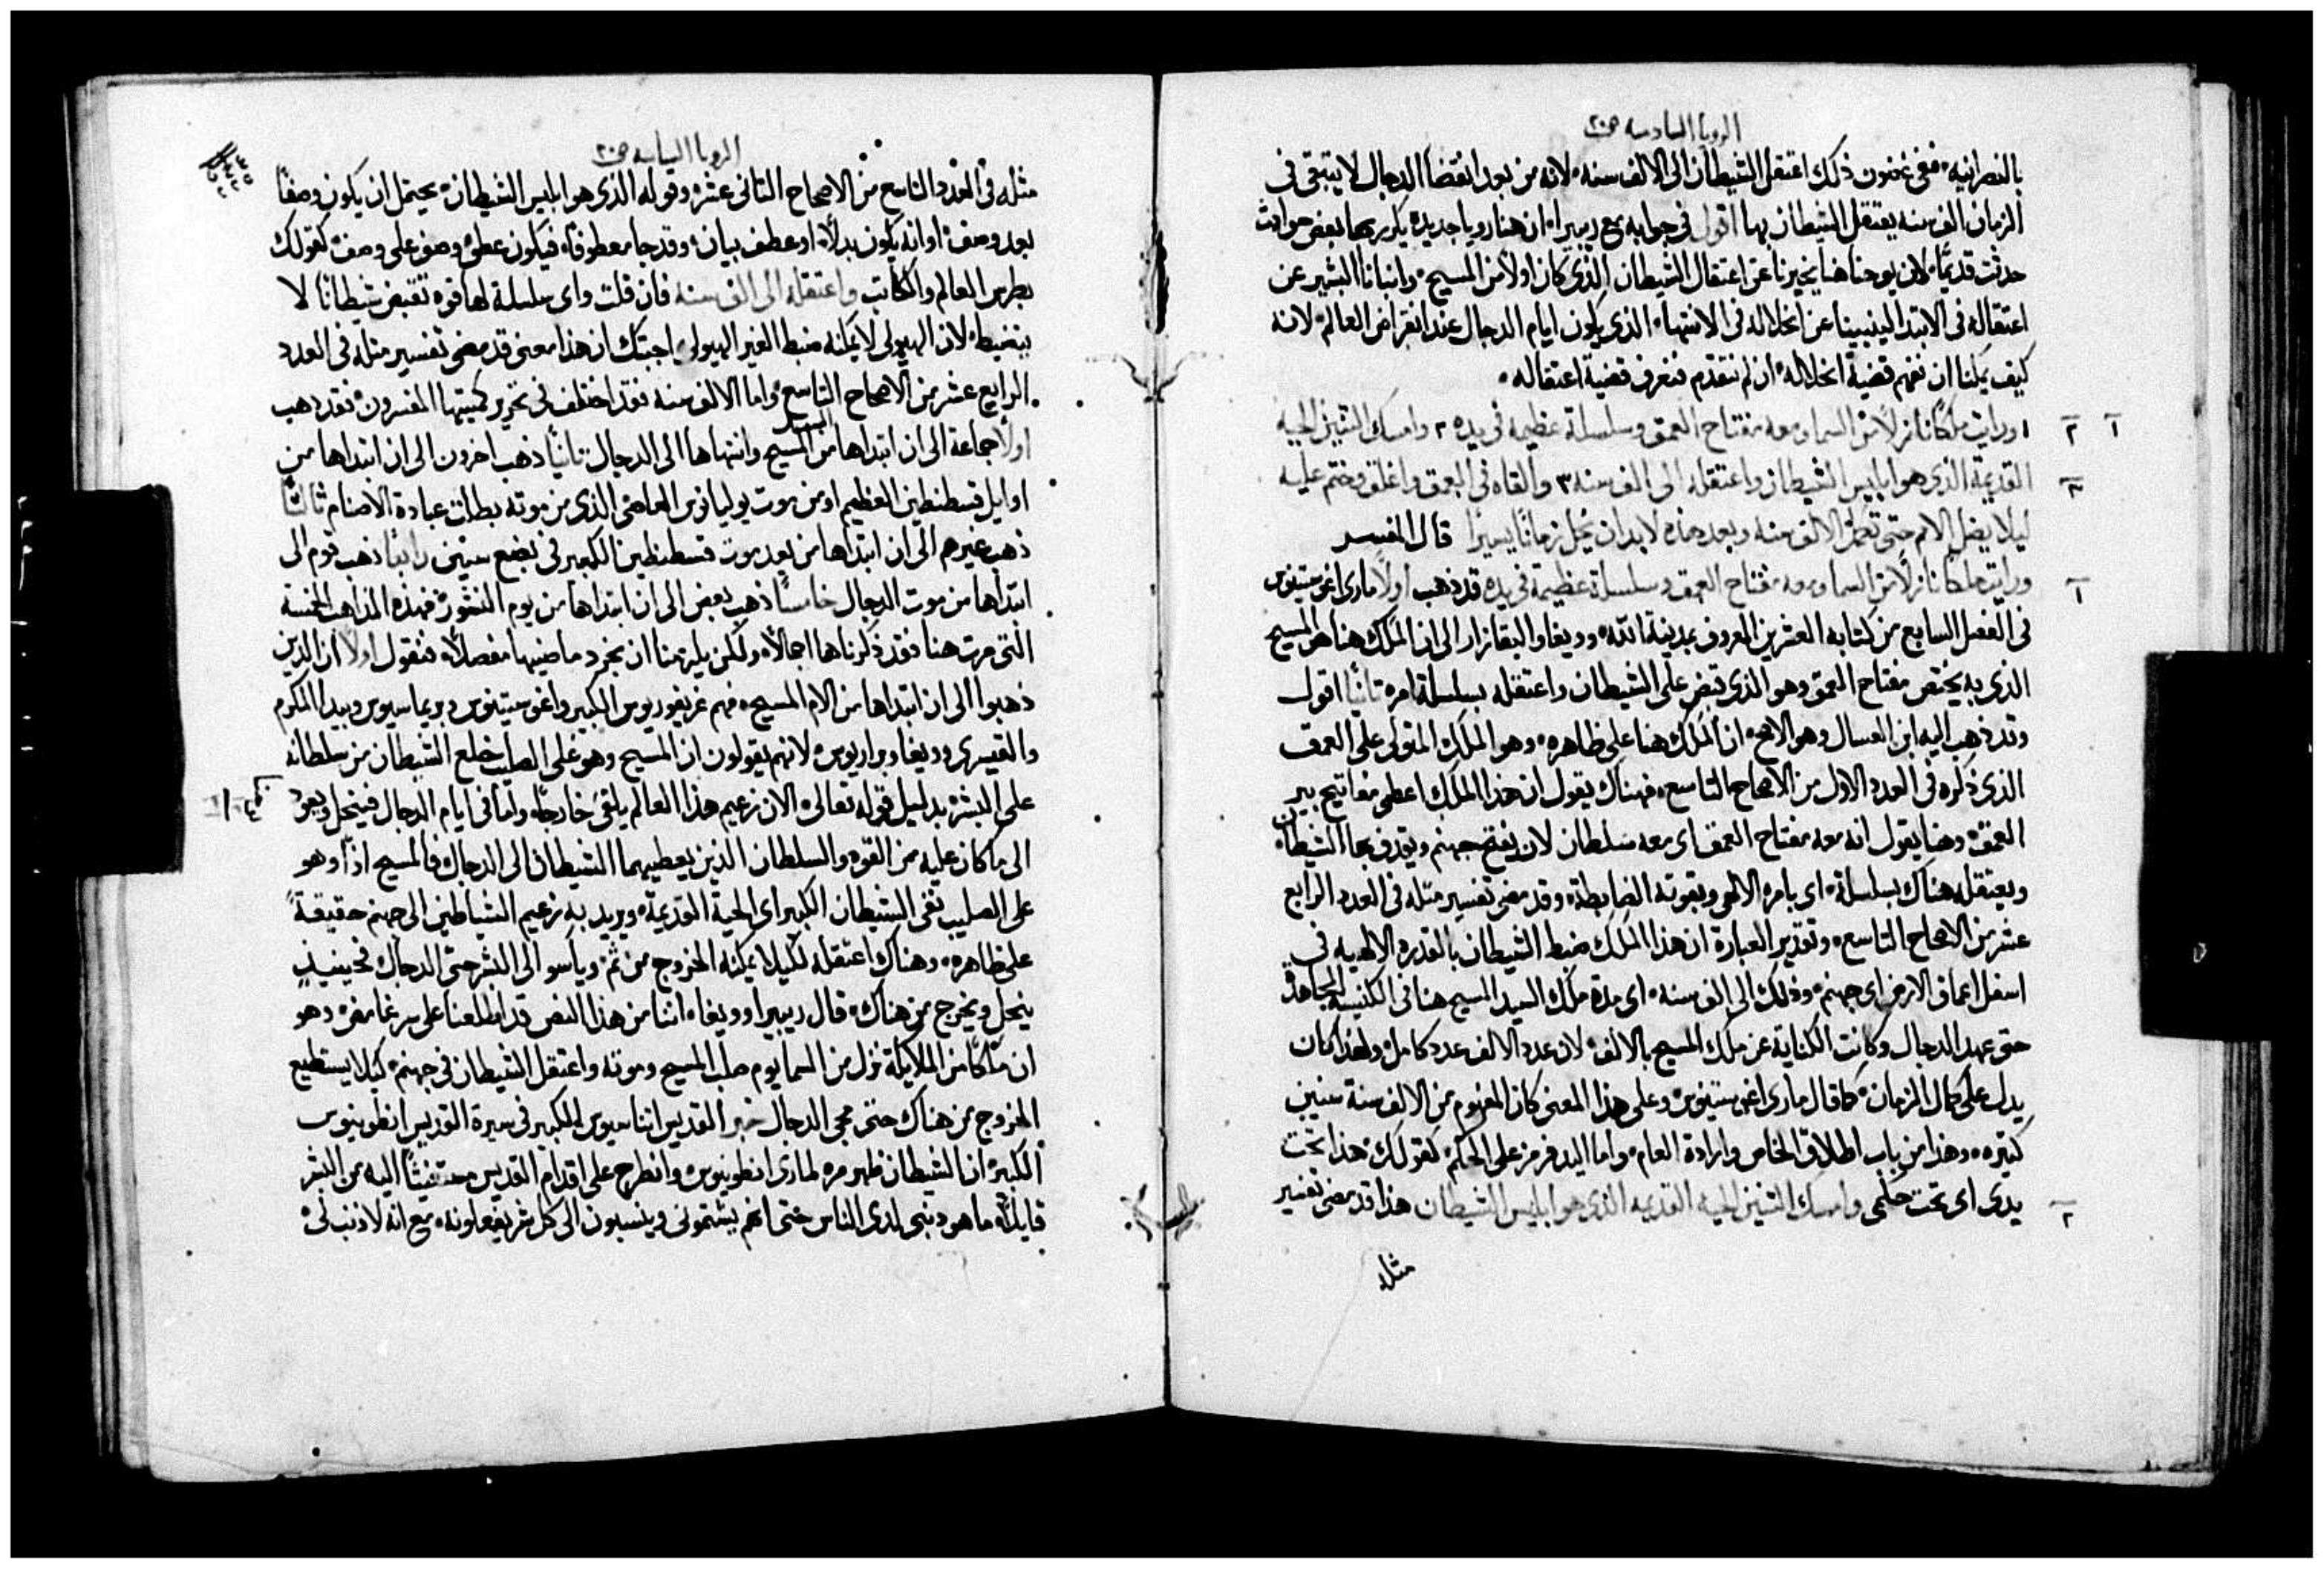 الرويا السادسه ص٢٠
بالنصرانيه، ففي غضون ذلك اعتقل الشيطان الى الالف سنه، لانه من بعد انقضا الدجال لا يتبقى في
الزمان الف سنه يعتقل الشيطان بها اقول في جوابه مع ريبيرا، ان هنا رويا جديده يكرر بها بعض حوادث
حدثت قديمًا، لان يوحنا هنا يخبرنا عن اعتقال الشيطان الذي كان اولاً من المسيح، وانبانا البشير عن
اعتقاله في الابتدا لينبينا عن انحلاله في الانتهاء، الذي يكون ايام الدجال عند انقراض العالم، لانه
كيف يمكننا ان نفهم قضية انحلاله، ان لم نتقدم فنعرف قضية اعتقاله،
١ ورايت ملكًا نازلاً من السما ومعه مفتاح العمق وسلسلة عظيمه في يده ٢ وامسك التنين الحيه
القديمة الذي هو ابليس الشيطان واعتقله الى الف سنه ٣ والقاه في العمق واغلق وختم عليه
ليلا يضل الامم حتى تكمل الالف سنه وبعد هذه لابد ان يُحل زمانًا يسيرًا قال المفسر
ورايت ملكًا نازلاً من السما ومعه مفتاح العمق وسلسلة عظيمة في يده قد ذهب اولاً ماري اغوستينوس
في الفصل السابع من كتابه العشرين المعروف بمدينة الله، وويغا والبقازار الى ان المَلَك هنا هو المسيح
الذي به يختص مفتاح العمق وهو الذي قبض على الشيطان واعتقله بسلسلة امره ثانيًا اقول
وقد ذهب اليه ابن العسال وهو الاصح، ان المَلَك هنا على ظاهره، وهو الملَك المتولى على العمق
الذي ذكره في العدد الاول من الاصحاح التاسع، فهناك يقول ان هذا الملَك اعطى مفاتيح بير
العمق، وهنا يقول انه معه مفتاح العمق اى معه سلطان لان يفتح جهنم ويقذف بها الشيطان
ويعتقله هناك بسلسلة، اى بامره الالهي وبقوته الضابطة، وقد مضى تفسير مثله في العدد الرابع
عشر من الاصحاح التاسع، وتقدير العبارة ان هذا المَلَك ضبط الشيطان بالقدره الالهيه في
اسفل اعماق الارض اى جهنم، وذلك الى الف سنه، اى مدة ملك السيد المسيح هنا في الكنيسة المجاهدة
حتى عهد الدجال وكانت الكناية عن ملك المسيح بالالف، لان عدد الالف عدد كامل، ولهذا كان
يدل على كمال الزمان، كما قال ماري اغوستينوس، وعلى هذا المعنى كان المفهوم من الالف سنة سنين
كثيره، وهذا من باب اطلاق الخاص وارادة العام، واما اليد فرمز على الحكم، كقولك، هذا تحت
يدي اى تحت حكمي وامسك التنين الحيه القديمه الذي هو ابليس الشيطان هذا قد مضى تفسير
مثله
الرويا السابعه ص٢٠
مثله في العدد التاسع من الاصحاح الثاني عشر، وقوله الذي هو ابليس الشيطان، يحتمل ان يكون وصفًا
بعد وصف، او انه يكون بدلاً، او عطف بيان، وقد جا معطوفًا، فيكون عطف وصف على وصف، كقولك
بطرس العالم والكاتب واعتقله الى الف سنه فان قلت واي سلسلة لها قوه تقبض شيطانًا لا
ينضبط، لان الهيولى لا يمكنه ضبط الغير الهيولى، اجبتك ان هذا معنى قد مضى تفسير مثله في العدد
الرابع عشر من الاصحاح التاسع، واما الالف سنه فقد اختلف في تحرير كميتها المفسرون، فقد ذهب
اولاً جماعة الى ان ابتداها من المسيح وانتهاها الى الدجال ثانيًا ذهب اخرون الى ان ابتداها من
اوايل قسطنطين العظيم او من موت يوليانوس العاصى الذي من موته بطلت عبادة الاصنام ثالثًا
ذهب غيرهم الى ان ابتداها من بعد موت قسطنطين الكبير في بضع سنين رابعًا ذهب قوم الى
ابتداها من موت الدجال خامسًا ذهب بعض الى ان ابتداها من يوم النشور، فهذه المذاهب الخمسة
التي مرت هنا فقد ذكرناها اجمالاً، ولكن يلزمنا ان نجرد ما ضمنها مفصلاً، فنقول اولاً ان الذين
ذهبوا الى ان ابتداها من الام المسيح، فهم غريغوريوس الكبير واغوستينوس وبريماسيوس وبيدا المكرم
والقيسرى وويغا وبراريوس، لانهم يقولون ان المسيح وهو على الصليب خلع الشيطان من سلطانه
على البشر، بدليل قوله تعالى، الان زعيم هذا العالم يلقى خارجًا، واما في ايام الدجال فينحل ويعود
الى ما كان عليه من القوه والسلطان الذين يعطيهما الشيطان الى الدجال، فالمسيح اذًا وهو
على الصليب نفى الشيطان الكبير اى الحية القديمة، ويريد به زعيم الشياطين الى جهنم حقيقةً
على ظاهره، وهناك اعتقله لكيلا يمكنه الخروج من ثم، ويأسو الى البشر حتى الدجال فحينيذٍ
ينحل ويخرج من هناك، قال ريبيرا وويغا، اننا من هذا النص قد اطلعنا على سر غامض، وهو
ان ملَكًا من الملايكة نزل من السما يوم صلب المسيح وموته، واعتقل الشيطان في جهنم، كيلا يستطيع
الخروج من هناك حتى مجى الدجال خبر القديس اتناسيوس الكبير في سيرة القديس انطونيوس
الكبير، ان الشيطان ظهر مره لماري انطونيوس، وانطرح على اقدام القديس مستغيثًا اليه من البشر
قايلاً، ما هو ذنبي لدى الناس حتى انهم يشتموني وينسبون الى كل شر يفعلونه، مع انه لا ذنب لى،